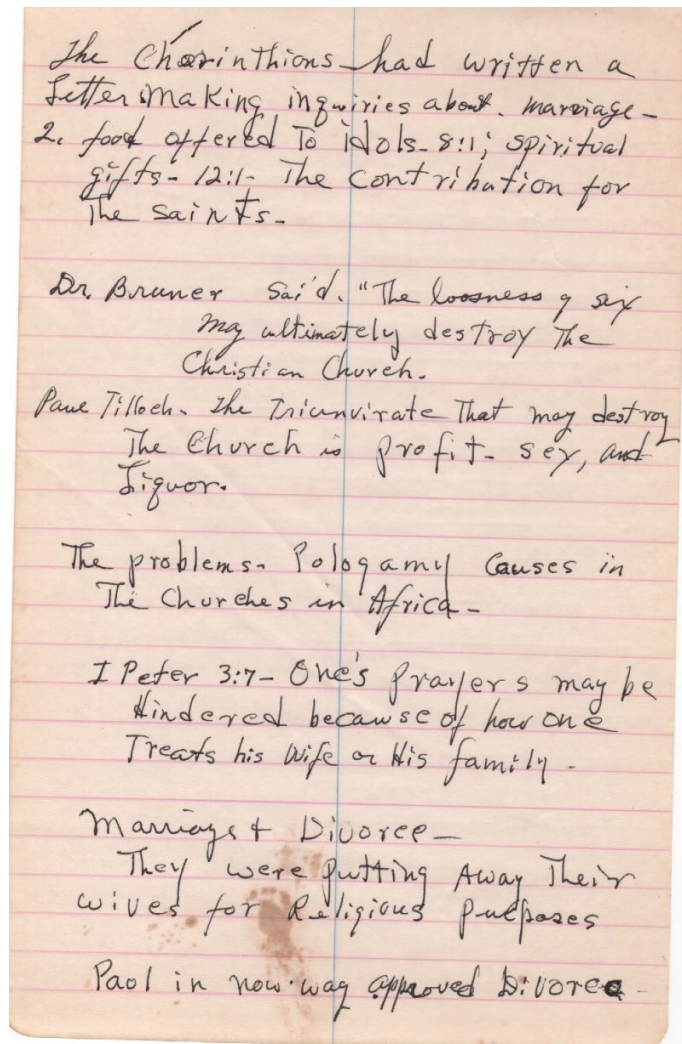 The Chorinthions had written a
Letter Making inquiries about. marriage-
2. food offered To idols- 8:1; Spiritual
gifts- 12:1- The Contribution for
The Saints-
Dr. Bruner Sai'd. "The loosness of sex
may ultimately destroy The
Christian Church.
Paul Tilloch. The Triunvirate That may destroy
The Church is profit- sex, and
Liquor.
The problems- Pologamy Causes in
The Churches in Africa-
I Peter 3:7- One's Prayers may be
Hindered becawse of how one
Treats his Wife or His family-
Marriage + Divorce-
They were putting Away Their
wives for Religious Purposes
Paol in now way approved Divorce-